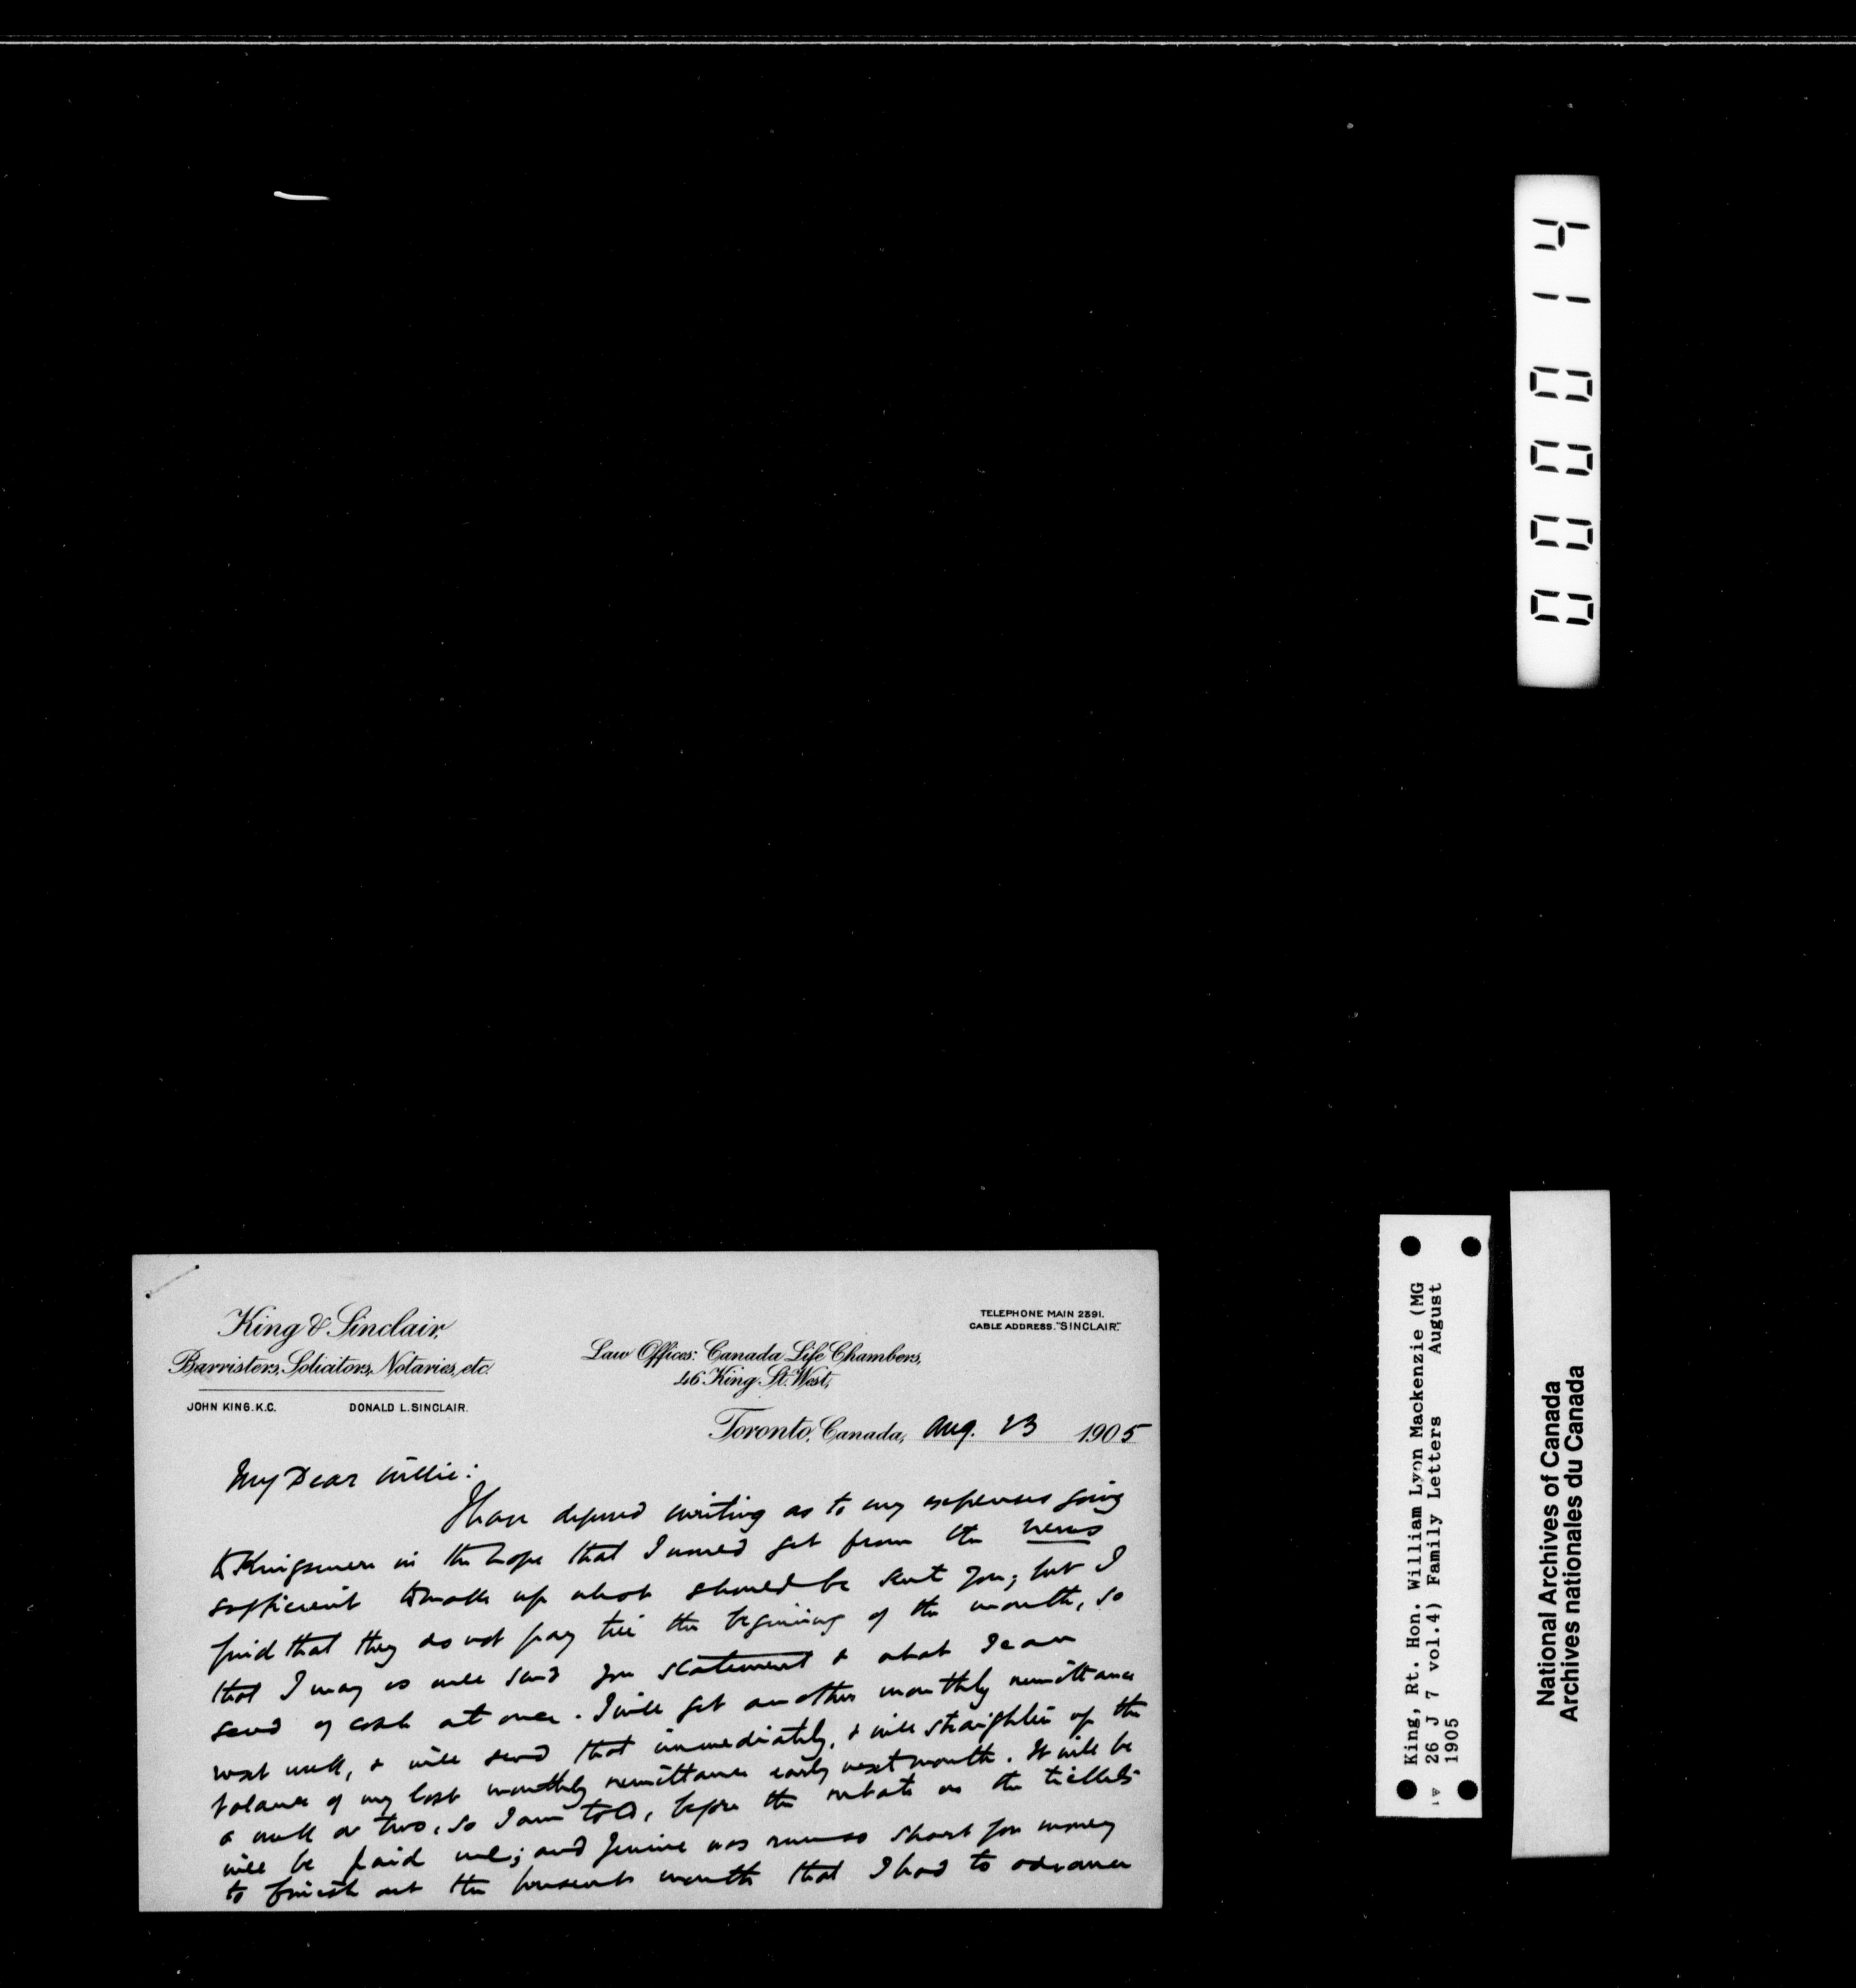 King & Sinclair,
Barristers, Solicitors, Notaries, etc.
JOHN KING. K.C. DONALD L. SINCLAIR.
Law Offices: Canada Life Chambers,
46 King St. West,
TELEPHONE MAIN 2391.
CABLE ADDRESS. "SINCLAIR."
Toronto, Canada, Aug. 23 1905
My Dear Willie:
I have deferred writing as to my expenses going
to Kingsmere in the hope that I would get from the News
sufficient to make up what should be sent you; but I
find that they do not pay till the beginning of the month, so
that I may as well send you statement & what I can
send of cash at once. I will get another monthly remittance
next week, & will send that immediately, & will straighten up the
balance of my last monthly remittance early next month. It will be
a week or two, so I am told, before the rebate on the tickets
will be paid me; and Jennie was so short for money
to finish out the month that I had to advance
000014
King, Rt. Hon. William Lyon Mackenzie (MG
26 J 7 vol.4) Family Letters August
1905
National Archives of Canada
Archives nationales du Canada